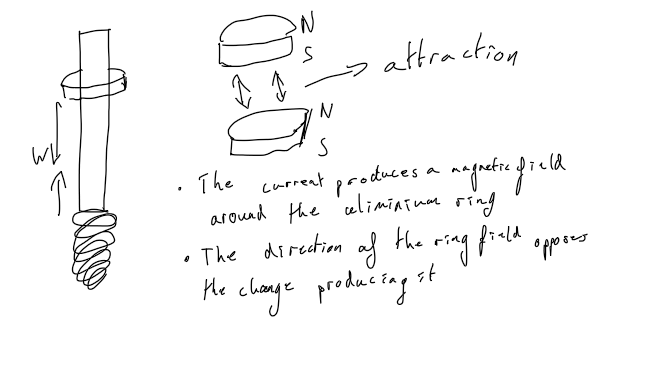 N
S
attraction
N
S
W
• The current produces a magnetic field
around the aliminium ring
• The direction of the ring field opposes
the change producing it